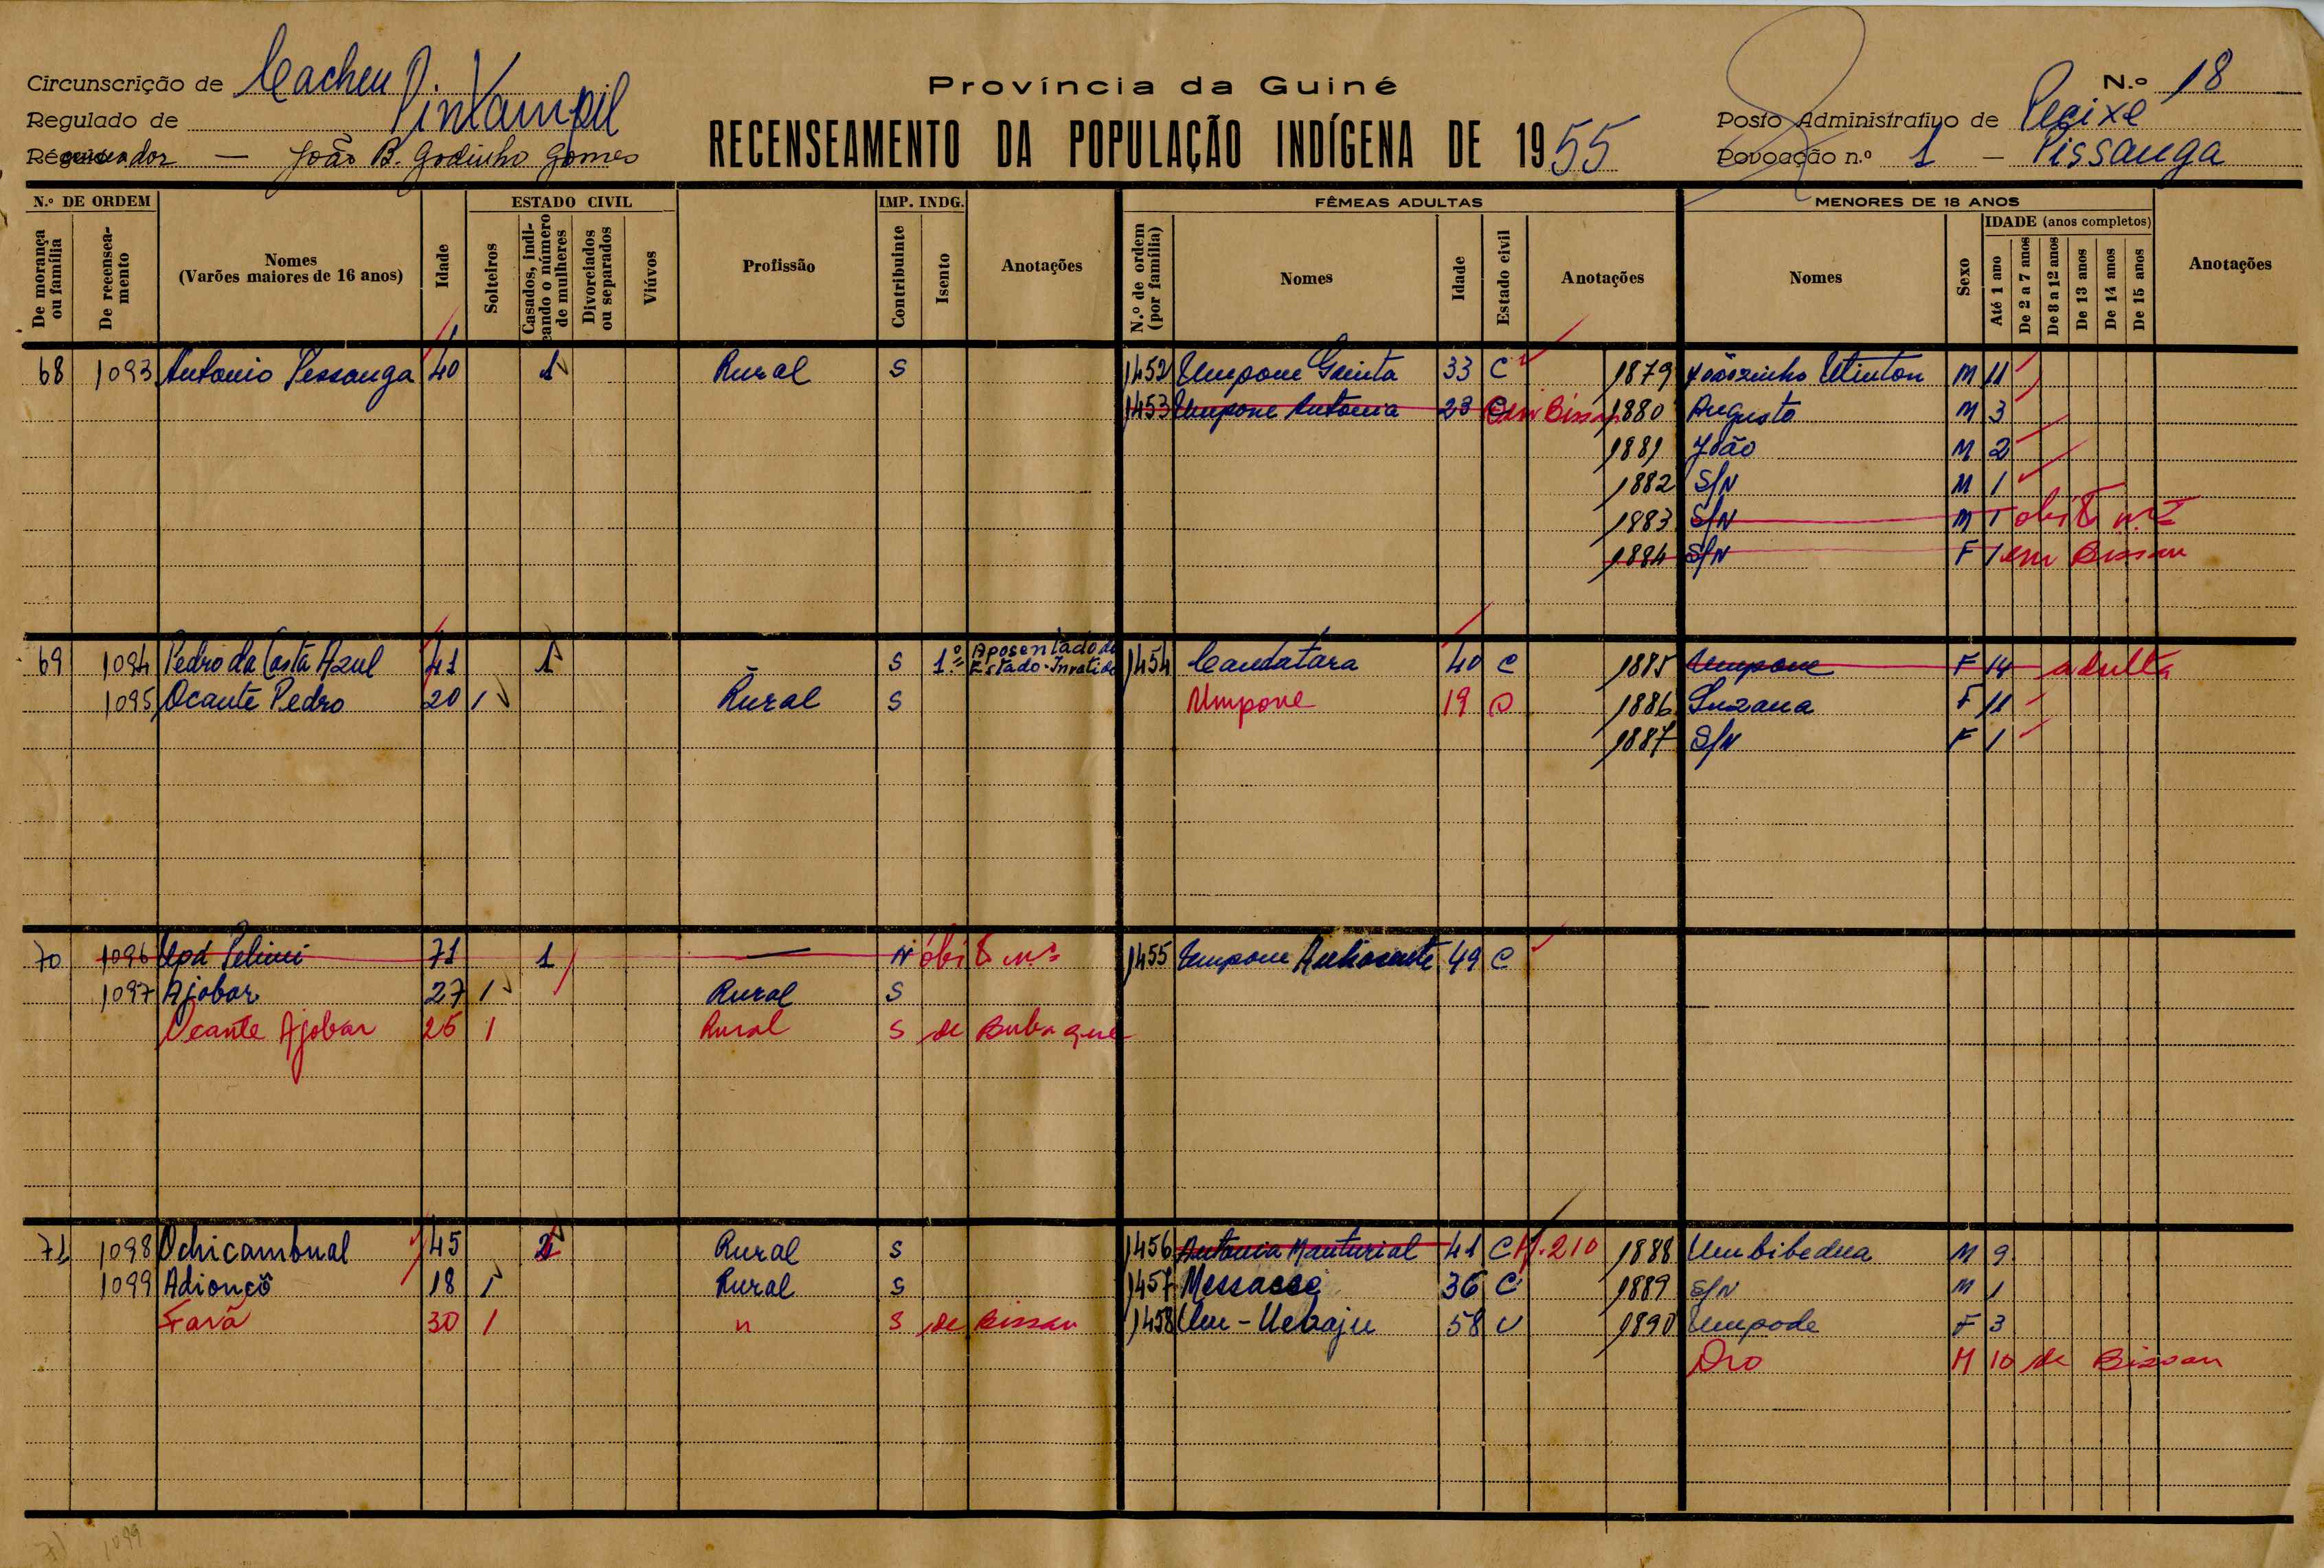 Circunscrição de Cacheu
Regulado de Pintampil
Recenseador — João B. Godinho Gomes
Província da Guiné
RECENSEAMENTO DA POPULAÇÃO INDÍGENA DE 1955
N.º 18
Posto Administrativo de Pecixe
Povoação n.º 1 — Pissanga
N.º DE ORDEM
De morança ou família
De recenseamento
Nomes
(Varões maiores de 16 anos)
Idade
ESTADO CIVIL
Solteiros
Casados, indicando o número de mulheres
Divorciados ou separados
Viúvos
Profissão
IMP. INDG.
Contribuinte
Isento
Anotações
FÊMEAS ADULTAS
N.º de ordem (por família)
Nomes
Idade
Estado civil
Anotações
MENORES DE 18 ANOS
Nomes
Sexo
IDADE (anos completos)
Até 1 ano
De 2 a 7 anos
De 8 a 12 anos
De 13 anos
De 14 anos
De 15 anos
Anotações
68 1093 Antonio Pessanga 40 1 Rural S 1452 Umpone Guinta 33 C 1879 Joãozinho M 11
1453 Umpone Antonia 23 C em Bissau 1880 Augusto M 3
1881 João M 2
1882 S/N M 1
1883 S/N M 1 obito nº
1884 S/N F 1 em Bissau
69 1094 Pedro da Costa Azul 41 1 S 1.º Aposentado do Estado-Invalido 1454 Candatara 40 C 1885 Umpone F 14 adulta
1095 Ocante Pedro 20 1 Rural S Umpone 19 1886 Suzana F 11
1887 S/N F 1
70 1096 Upá 71 1 — N óbito nº 1455 Umpone 49 C
1097 Ajobar 27 1 Rural S
Ocante Ajobar 25 1 Rural S de Bubaque
71 1098 Ochicambual 45 2 Rural S 1456 Antonia Manturial 41 C M. 210 1888 Umbibedna M 9
1099 Adioncô 18 1 Rural S 1457 Messasse 36 C 1889 S/N M 1
Farã 30 1 " S de Bissau 1458 58 V 1890 Umpode F 3
Oro M 10 de Bissau
71 1099